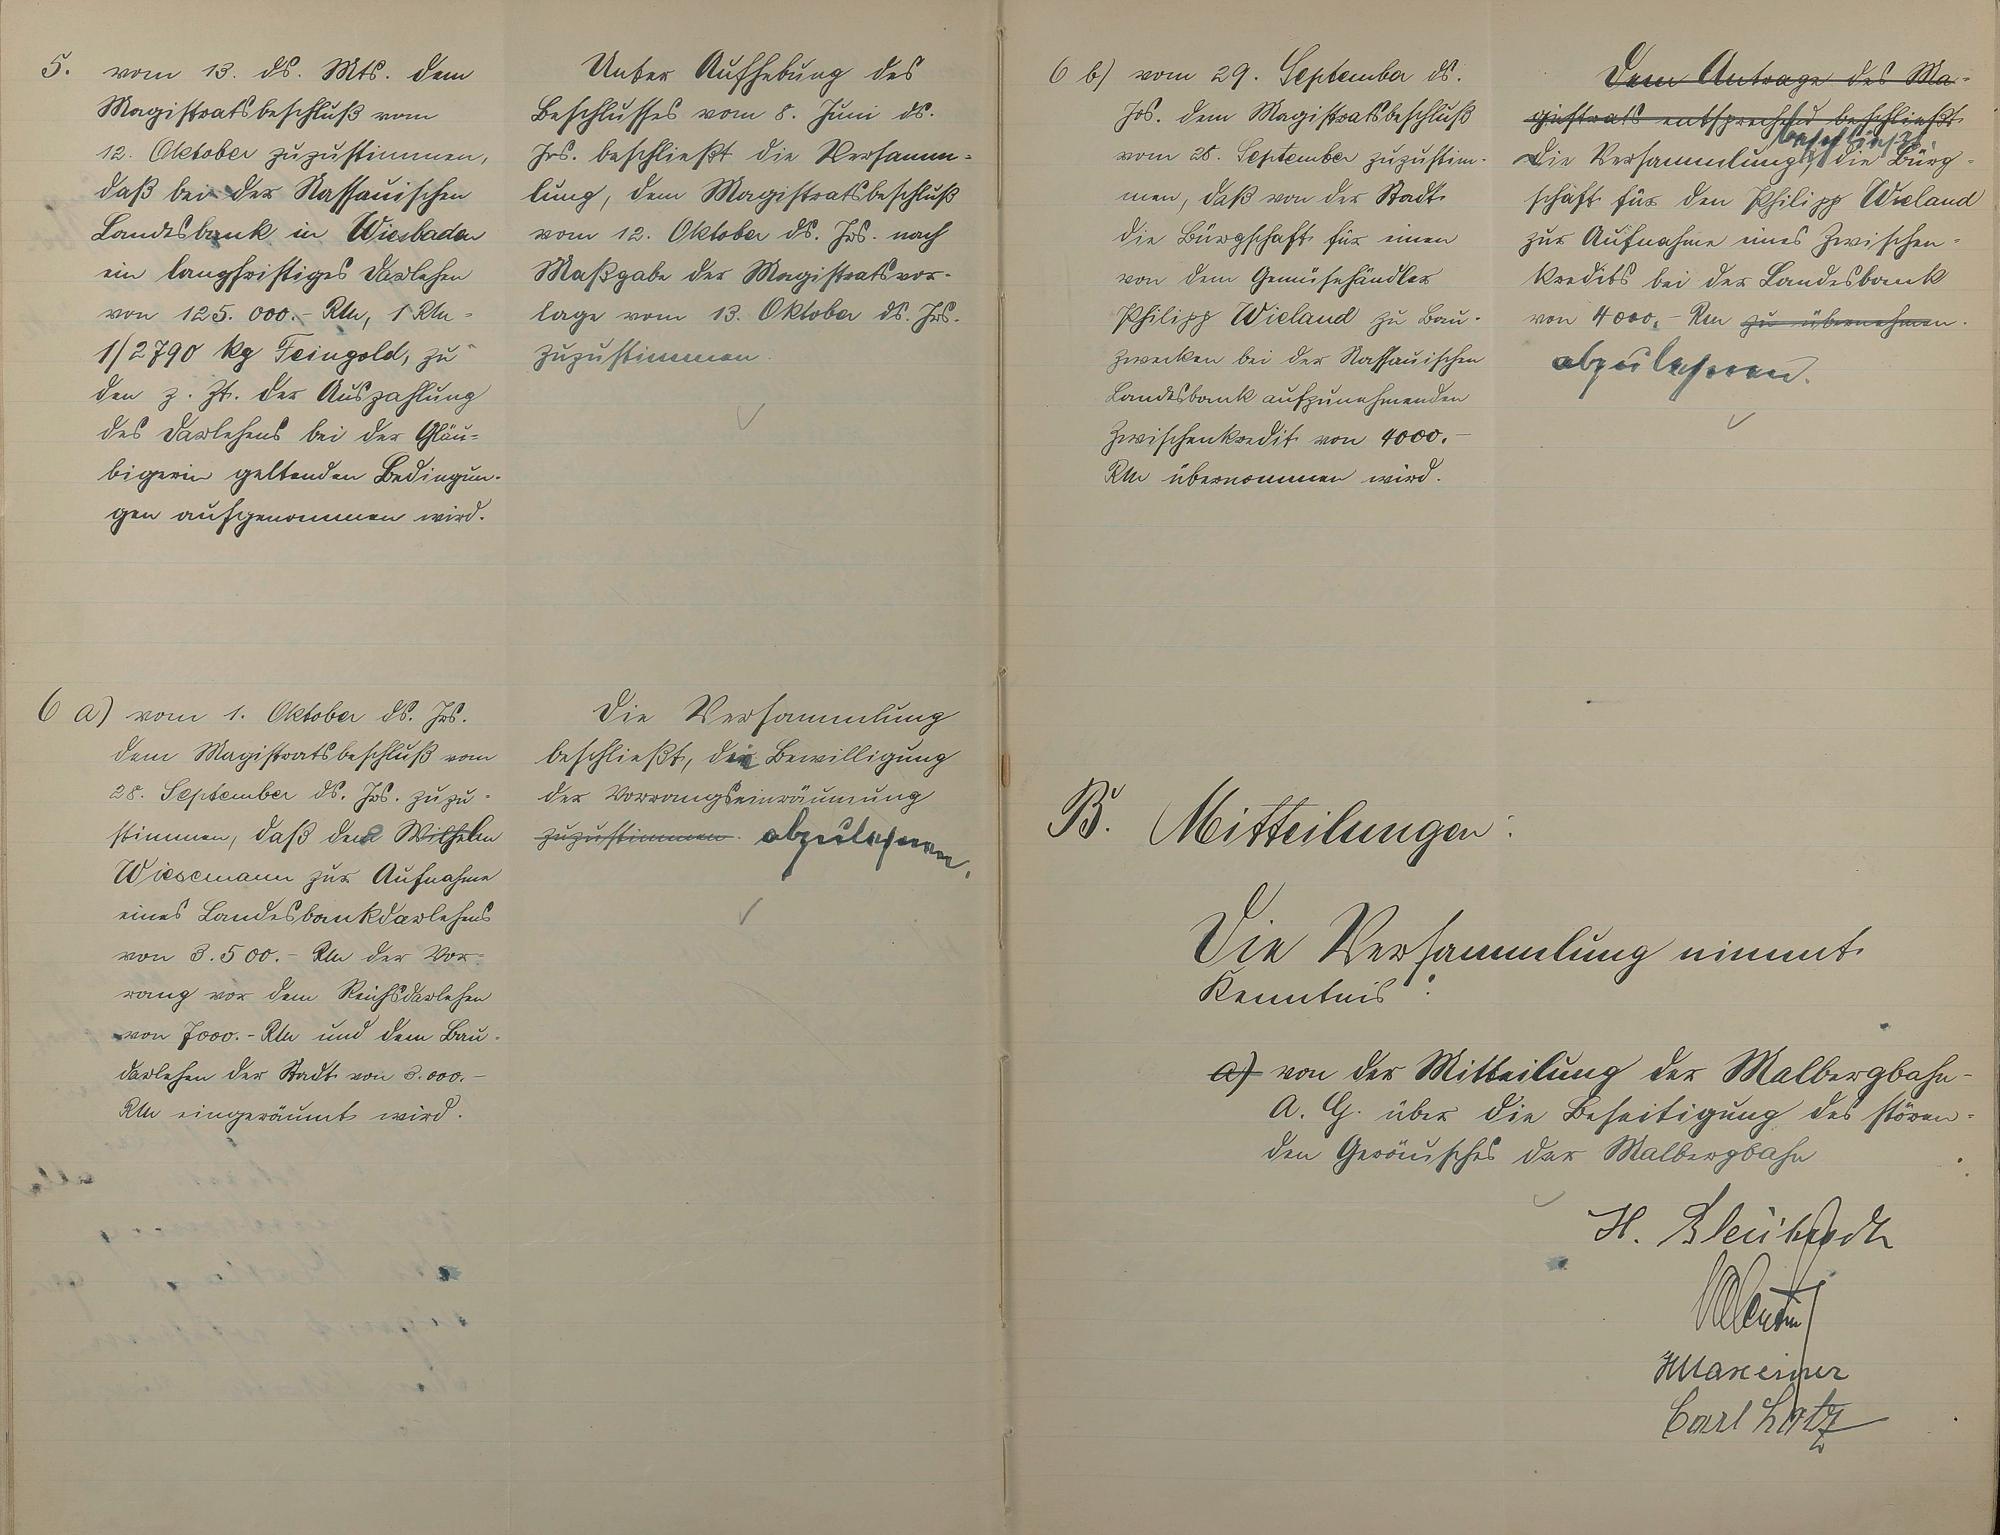 5. vom 13. ds. Mts. dem
Magistratsbeschluß vom
12. Oktober zuzustimmen,
daß bei der Nassauischen
Landesbank in Wiesbaden
ein langfristiges Darlehen
von 125.000.- RM, 1 RM =
1/2790 kg Feingold, zu
den z. Zt. der Auszahlung
des Darlehens bei der Gläu-
bigerin geltenden Bedingun-
gen aufgenommen wird.
Unter Aufhebung des
Beschlusses vom 8. Juni ds.
Jrs. beschließt die Versamm-
lung, dem Magistratsbeschluß
vom 12. Oktober ds. Jrs. nach
Maßgabe der Magistratsvor-
lage vom 13. Oktober ds. Jrs.
zuzustimmen.
6 a) vom 1. Oktober ds. Jrs.
dem Magistratsbeschluß vom
28. September ds. Jrs. zuzu-
stimmen, daß dem Wilhelm
Wiesemann zur Aufnahme
eines Landesbankdarlehens
von 3.500.- RM der Vor-
rang vor dem Reichsdarlehen
von 7000.- RM und dem Bau-
darlehen der Stadt von 3.000.-
RM eingeräumt wird.
Die Versammlung
beschließt, die Bewilligung
der Vorrangseinräumung
zuzustimmen. abzulehnen.
6 b) vom 29. September ds.
Jrs. dem Magistratsbeschluß
vom 28. September zuzustim-
men, daß von der Stadt
die Bürgschaft für einen
von dem Gemüsehändler
Philipp Wieland zu Bau-
zwecken bei der Nassauischen
Landesbank aufzunehmenden
Zwischenkredit von 4000.-
RM übernommen wird.
Dem Antrage des Ma-
gistrats entsprechend beschließt
beschließt
die Versammlung, die Bürg-
schaft für den Philipp Wieland
zur Aufnahme eines Zwischen-
kredits bei der Landesbank
von 4000.- RM zu übernehmen.
abzulehnen.
B. Mitteilungen:
Die Versammlung nimmt
Kenntnis:
a) von der Mitteilung der Malbergbahn-
A. G. über die Beseitigung des stören-
den Geräusches der Malbergbahn
H.
Maxeiner
Carl Lotz